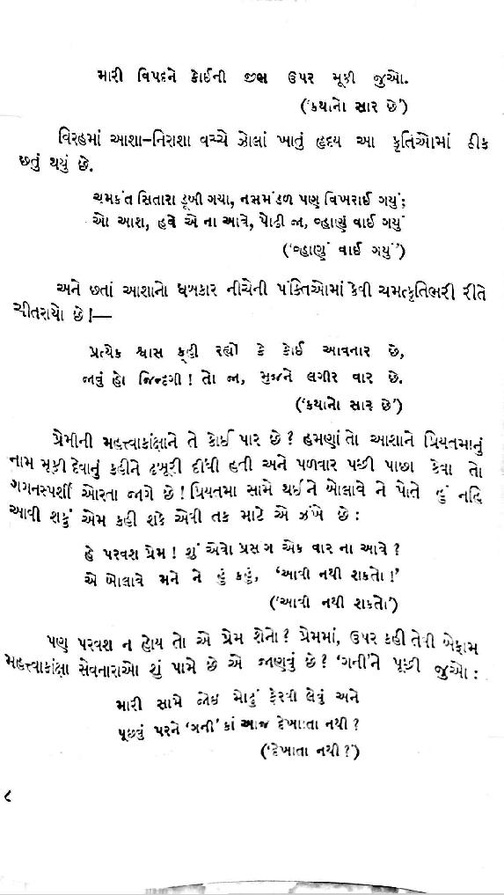 મારી વિપદને કોઈની જીભ ઉપર મૂકી જુઓ.
('કથાનો સાર છે')
વિરહમાં આશા-નિરાશા વચ્ચે ઝોલાં ખાતું હૃદય આ કૃતિઓમાં ઠીક
છતું થયું છે.
ચમકંત સિતારા ડૂબી ગયા, નભમંડળ પણ વિખરાઈ ગયું;
ઓ આશ, હવે એ ના આવે, પોઢી જા, વ્હાણું વાઈ ગયું
('વ્હાણું વાઈ ગયું')
અને છતાં આશાનો ધબકાર નીચેની પંક્તિઓમાં કેવી ચમત્કૃતિભરી રીતે
ચીતરાયો છે!—
પ્રત્યેક શ્વાસ કહી રહ્યો કે કોઈ આવનાર છે,
જાવું હો જિન્દગી! તો જા, મુજને લગીર વાર છે.
('કથાનો સાર છે')
પ્રેમીની મહત્ત્વાકાંક્ષાને તે કોઈ પાર છે? હમણાં તો આશાને પ્રિયતમાનું
નામ મૂકી દેવાનું કહીને ઢબૂરી દીધી હતી અને પળવાર પછી પાછા કેવા તો
ગગનસ્પર્શી ઓરતા જાગે છે! પ્રિયતમા સામે થઈને બોલાવે ને પોતે હું નહિ
આવી શકું એમ કહી શકે એવી તક માટે એ ઝંખે છે:
હે પરવશ પ્રેમ! શું એવો પ્રસંગ એક વાર ના આવે?
એ બોલાવે મને ને હું કહું, 'આવી નથી શકતો!'
('આવી નથી શકતો')
પણ પરવશ ન હોય તો એ પ્રેમ શેનો? પ્રેમમાં, ઉપર કહી તેવી બેફામ
મહત્ત્વાકાંક્ષા સેવનારાઓ શું પામે છે એ જાણવું છે? 'ગની'ને પૂછી જુઓ:
મારી સામે જોઈ મોઢું ફેરવી લેવું અને
પૂછવું પરને 'ગની' કાં આજ દેખાતા નથી?
('દેખાતા નથી?')
૮